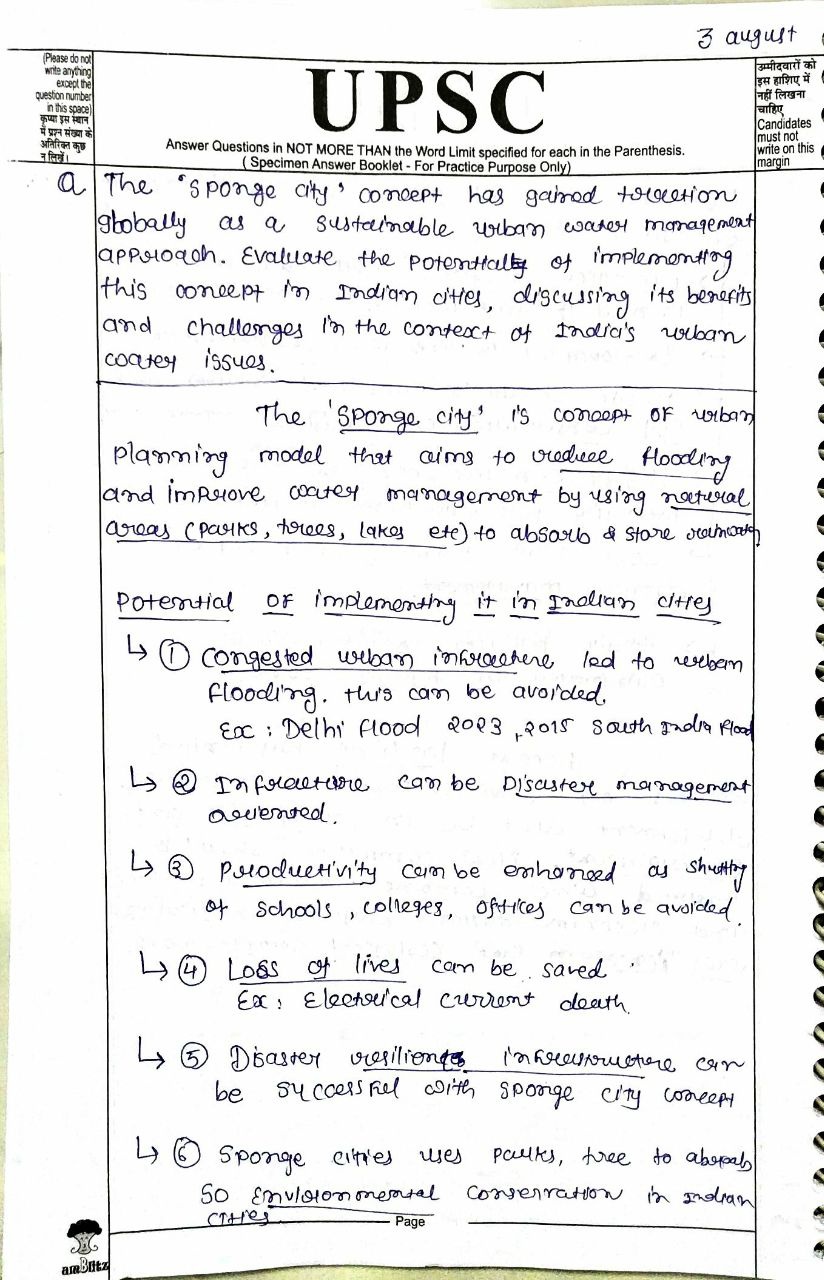 3 august
(Please do not
write anything
except the
question number
in this space)
कृप्या इस स्थान
में प्रश्न संख्या के
अतिरिक्त कुछ
न लिखें।
UPSC
Answer Questions in NOT MORE THAN the Word Limit specified for each in the Parenthesis.
( Specimen Answer Booklet - For Practice Purpose Only)
उम्मीदवारों को
इस हाशिए में
नहीं लिखना
चाहिए
Candidates
must not
write on this
margin
Q The 'Sponge city' concept has gained traction
globally as a sustainable urban water management
approach. Evaluate the potential of implementing
this concept in Indian cities, discussing its benefits
and challenges in the context of India's urban
water issues.
The 'Sponge city' is concept of urban
planning model that aims to reduce flooding
and improve water management by using natural
areas (parks, trees, lakes etc) to absorb & store rainwater
Potential of implementing it in Indian cities
↳ ① Congested urban infractere led to urban
flooding. this can be avoided.
Ex : Delhi flood 2023, 2015 South India flood
↳ ② Infracture can be Disaster management
oriented.
↳ ③ Productivity can be enhanced as shutting
of schools, colleges, offices can be avoided.
↳ ④ Loss of lives can be saved
Ex : Electrical current death.
↳ ⑤ Disaster resilient infrastructure can
be successful with sponge city concept
↳ ⑥ Sponge cities uses parks, tree to
so environmental conservation in Indian
cities
Page
amBlitz